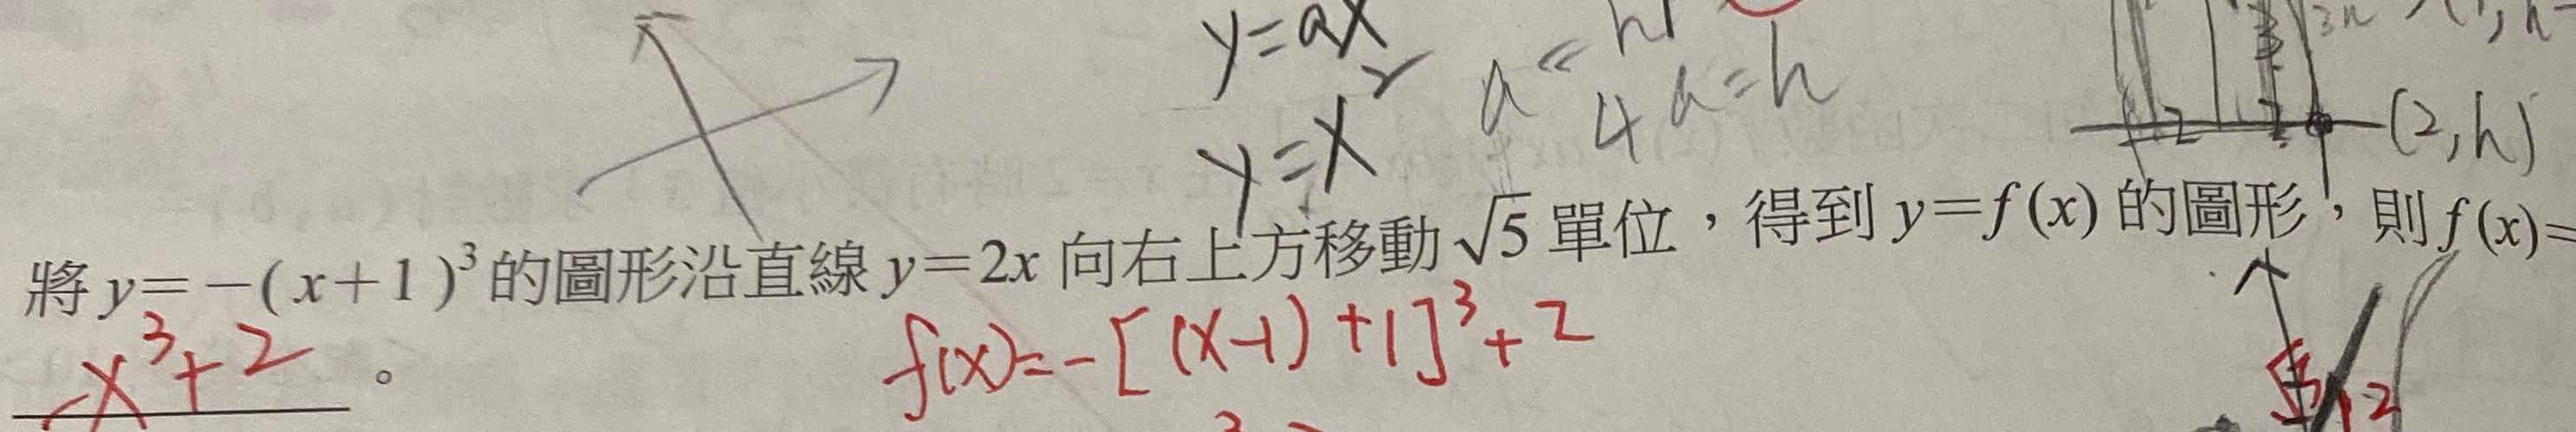 y=ax²
4a=h
y=x
(2,h)
將 y=-(x+1)³ 的圖形沿直線 y=2x 向右上方移動 √5 單位，得到 y=f(x) 的圖形，則 f(x)=
-x³+2 。
f(x)=-[(x-1)+1]³+2
√5 1 2